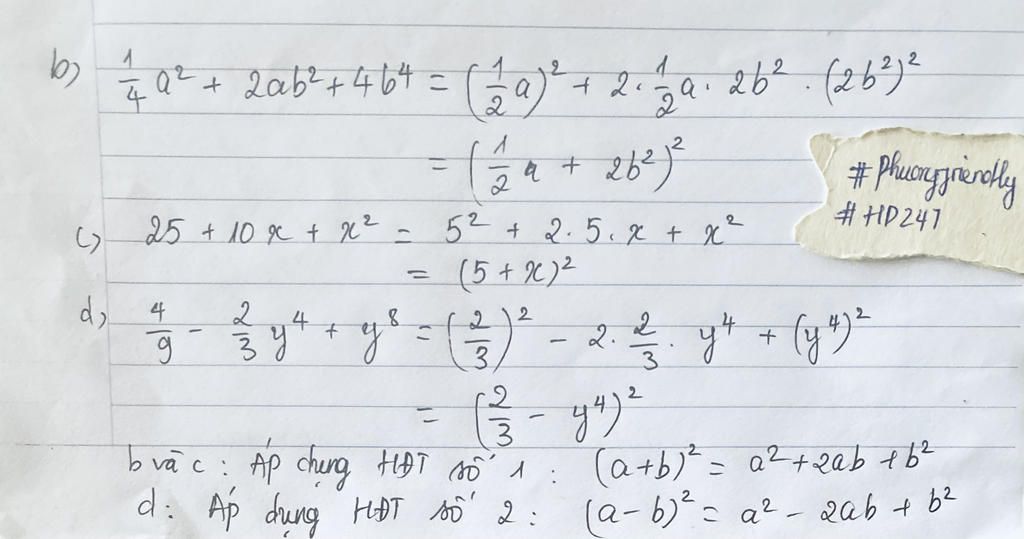 b) 1/4 a² + 2ab² + 4b⁴ = (1/2 a)² + 2 · 1/2 a · 2b² · (2b²)²
= (1/2 a + 2b²)²
#Phuongfriendly
#HD247
c) 25 + 10x + x² = 5² + 2 · 5 · x + x²
= (5 + x)²
d) 4/9 − 2/3 y⁴ + y⁸ = (2/3)² − 2 · 2/3 · y⁴ + (y⁴)²
= (2/3 − y⁴)²
b và c : Áp dụng HĐT số 1 : (a+b)² = a² + 2ab + b²
d : Áp dụng HĐT số 2 : (a − b)² = a² − 2ab + b²